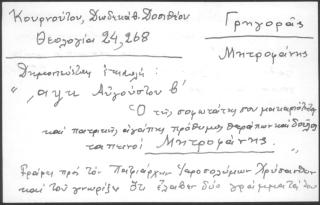 Κουρνούτου, Δωδεκάβ. Δοσιθέου
Θεολογία 24, 268
Γρηγοράς
Μητροφάνης
Δημοσιεύεται ἐπιστολή:
" ͵αψκ Αὐγούστου β'
Ὁ τῆς σοφωτάτης σου μακαριότητος
καὶ πατρικῆς ἀγάπης πρόθυμος θεράπων καὶ δοῦλος
ταπεινὸς Μητροφάνης. "
Γράφει πρὸς τὸν Πατριάρχην Ἱεροσολύμων Χρύσανθον
καὶ τοῦ γνωρίζει ὅτι ἔλαβεν δύο γράμματά του